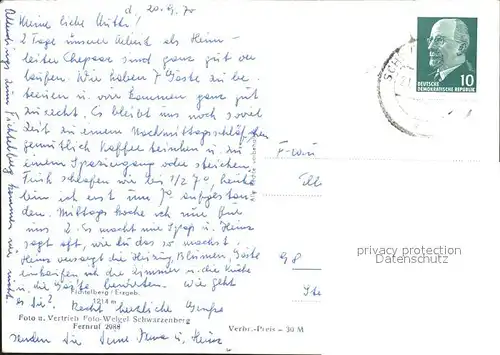 d. 20.9.70
Meine liebe Mutti!
2 Tage unserer Arbeit als Heim-
leiter Ehepaar sind ganz gut ver
laufen. Wir haben 7 Gäste zu be-
treuen u. wir kommen ganz gut
zurecht. Es bleibt uns noch soviel
Zeit zu einem Nachmittagsschläfchen
gemütlich Kaffee trinken u. zu
einem Spaziergang oder stricken.
Früh schlafen wir bis 1/2 7°, heute
bin ich erst um 7° aufgestan
den. Mittags koche ich nur für
uns 2. Es macht mir Spaß u. Heinz
sagt oft, wie du das so machst.
Heinz versorgt die Heizung, Blumen, Gäste
einkaufen ich die Zimmer u. die Küche
u. die Gäste bewirten. Wie geht
es Dir? Recht herzliche Grüße
senden Dir Deine u. Heinz
Fichtelberg / Erzgeb.
1214 m
Foto u. Vertrieb Foto-Weigel Schwarzenberg
Fernruf 2988
Verbr.-Preis - 30 M
zum Fichtelberg kommen wir nicht.
Frau
DEUTSCHE
DEMOKRATISCHE REPUBLIK
10
SCH
privacy protection
Datenschutz